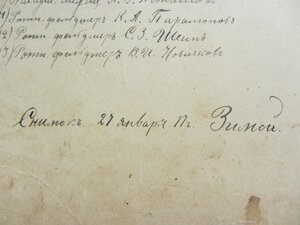 1) Ротн. фельдшеръ К. А. Парамоновъ
2) Ротн. фельдшеръ С. З. Шинъ
3) Ротн. фельдшеръ В. И.
Снимокъ 27 январь 17 г. Зимой.